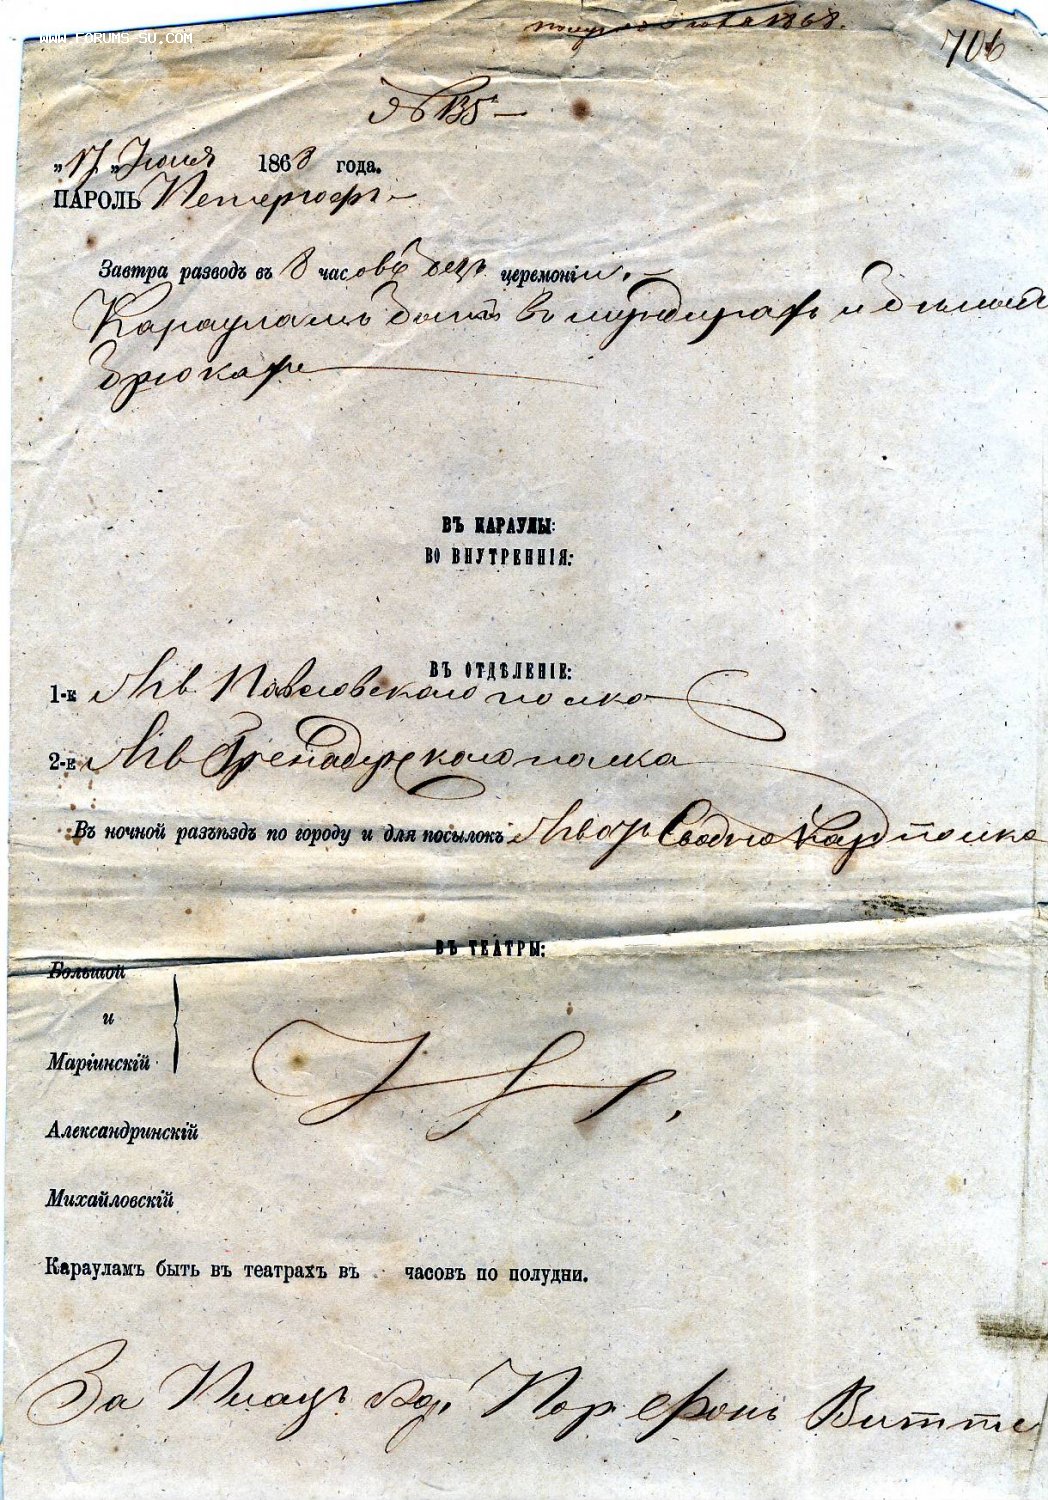 www.forums-su.com
1868.
706
№ 135
„17 „Июля 1868 года.
ПАРОЛЬ Петергофъ
Завтра разводъ въ 8 часовъ безъ церемоніи.
Карауламъ быть въ мундирахъ и белыхъ
брюкахъ
ВЪ КАРАУЛЫ:
ВО ВНУТРЕННІЯ:
ВЪ ОТДѢЛЕНІЕ:
1-е Лгв Павловскаго полка
2-е Лгв Гренадерскаго полка
Въ ночной разъѣздъ по городу и для посылокъ Сводно полка
ВЪ ТЕАТРЫ:
Большой
и
Маріинскій
Александринскій
Михайловскій
Карауламъ быть въ театрахъ въ часовъ по полудни.
За Плацъ Ад. Пор фонъ Витте